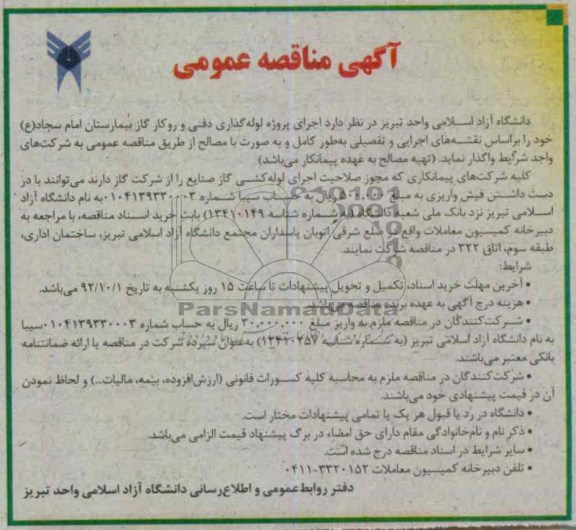 آگهی مناقصه عمومی
دانشگاه آزاد اسلامی واحد تبریز در نظر دارد اجرای پروژه لوله‌گذاری دفنی و روکار گاز بیمارستان امام سجاد(ع)
خود را براساس نقشه‌های اجرایی و تفصیلی به‌طور کامل و به صورت با مصالح از طریق مناقصه عمومی به شرکت‌های
واجد شرایط واگذار نماید. (تهیه مصالح به عهده پیمانکار می‌باشد)
کلیه شرکت‌های پیمانکاری که مجوز صلاحیت اجرای لوله‌کشی گاز صنایع را از شرکت گاز دارند می‌توانند با در
دست داشتن فیش واریزی به مبلغ ریال به حساب سیبا شماره ۰۱۰۴۱۳۹۳۳۰۰۰۳ به نام دانشگاه آزاد
اسلامی تبریز نزد بانک ملی شعبه دانشگاه (به شماره شناسه ۱۳۴۱۰۱۴۹) بابت خرید اسناد مناقصه، با مراجعه به
دبیرخانه کمیسیون معاملات واقع در ضلع شرقی اتوبان پاسداران مجتمع دانشگاه آزاد اسلامی تبریز، ساختمان اداری،
طبقه سوم، اتاق ۳۲۲ در مناقصه شرکت نمایند.
شرایط:
• آخرین مهلت خرید اسناد، تکمیل و تحویل پیشنهادات تا ساعت ۱۵ روز یکشنبه به تاریخ ۹۲/۱۰/۱ می‌باشد.
• هزینه درج آگهی به عهده برنده مناقصه می‌باشد.
• شرکت‌کنندگان در مناقصه ملزم به واریز مبلغ ۳۰,۰۰۰,۰۰۰ ریال به حساب شماره ۰۱۰۴۱۳۹۳۳۰۰۰۳ سیبا
به نام دانشگاه آزاد اسلامی تبریز (به شماره شناسه ) به‌عنوان سپرده شرکت در مناقصه یا ارائه ضمانتنامه
بانکی معتبر می‌باشند.
• شرکت‌کنندگان در مناقصه ملزم به محاسبه کلیه کسورات قانونی (ارزش‌افزوده، بیمه، مالیات...) و لحاظ نمودن
آن در قیمت پیشنهادی خود می‌باشند.
• دانشگاه در رد یا قبول هر یک یا تمامی پیشنهادات مختار است.
• ذکر نام و نام‌خانوادگی مقام دارای حق امضاء در برگ پیشنهاد قیمت الزامی می‌باشد.
• سایر شرایط در اسناد مناقصه درج شده است.
• تلفن دبیرخانه کمیسیون معاملات ۳۳۲۰۱۵۲-۰۴۱۱
دفتر روابط‌عمومی و اطلاع‌رسانی دانشگاه آزاد اسلامی واحد تبریز
ParsNamadData